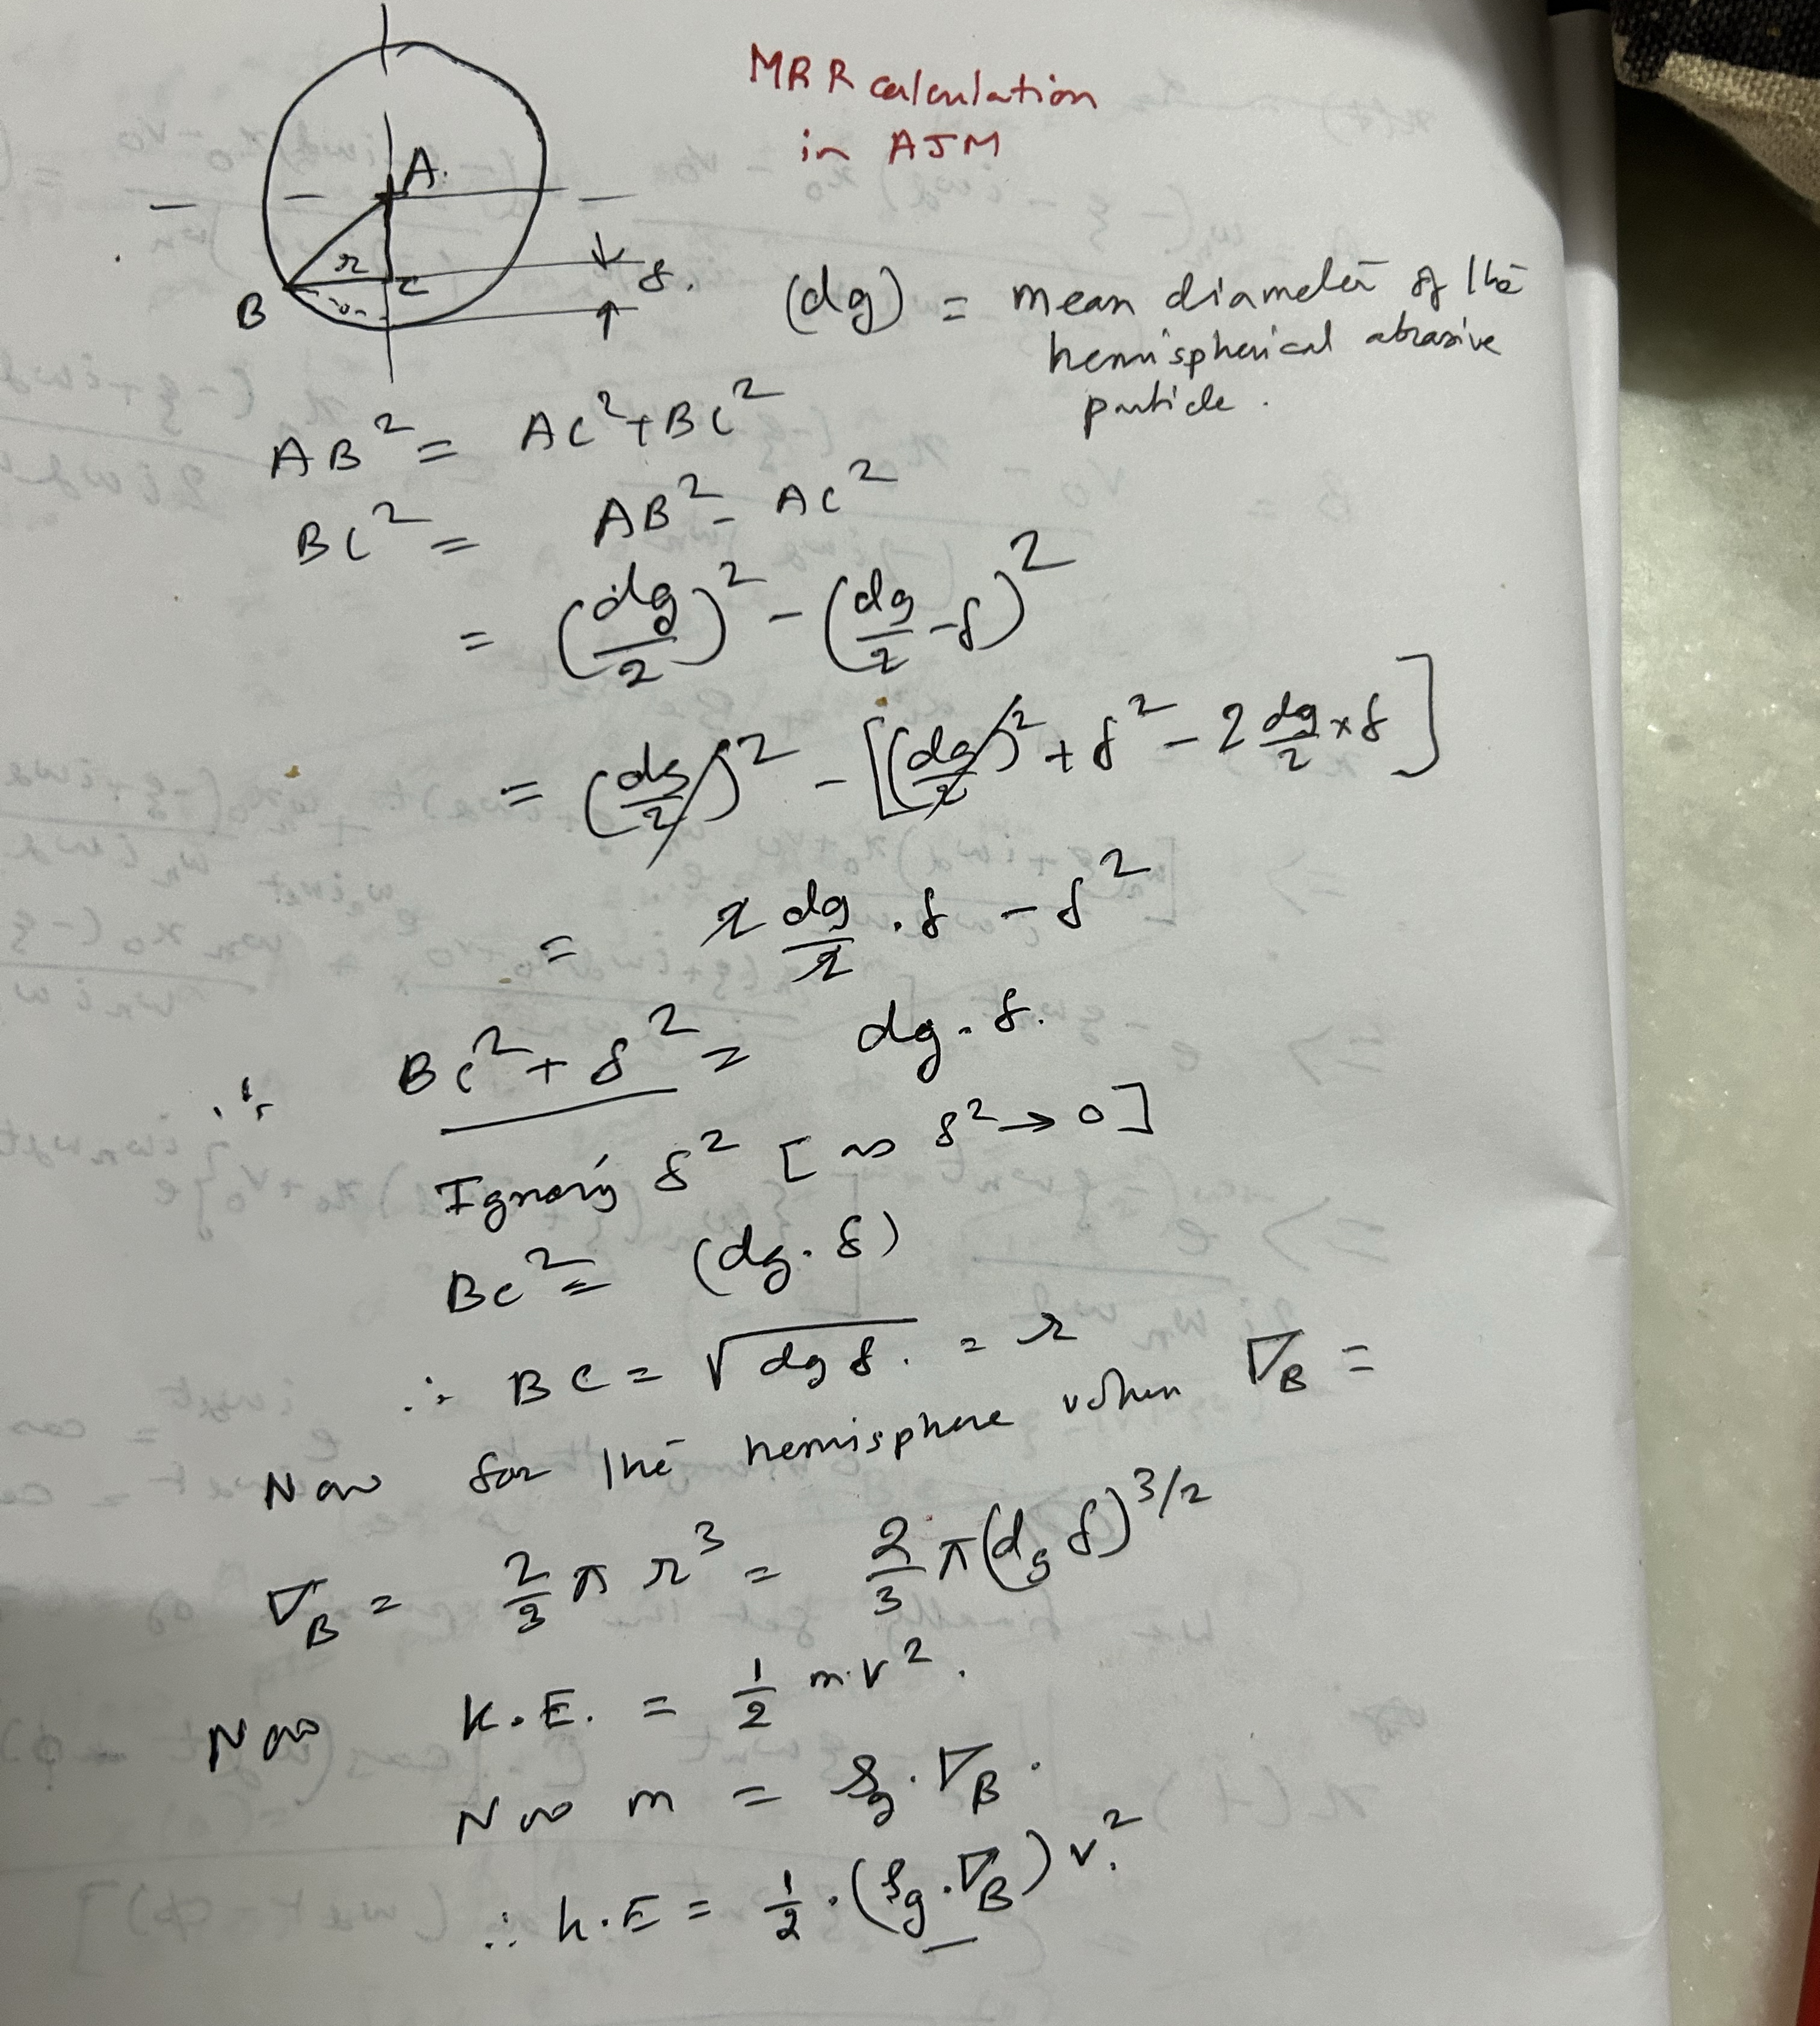 MRR calculation
in AJM
A.
r
B
C
δ.
(dg) = mean diameter of the
hemispherical abrasive
particle.
AB² = AC² + BC²
BC² = AB² - AC²
= (dg/2)² - (dg/2 - δ)²
= (dg/2)² - [(dg/2)² + δ² - 2 dg/2 × δ]
= 2 dg/2 . δ - δ²
∴ BC² + δ² = dg . δ.
Ignoring δ² [as δ² → 0]
BC² = (dg . δ)
∴ BC = √dg δ. = r
Now for the hemisphere when ∇B =
∇B = 2/3 π r³ = 2/3 π (dg δ)^3/2
Now K.E. = 1/2 m.v².
Now m = ρg . ∇B.
∴ K.E = 1/2 . (ρg . ∇B) v².